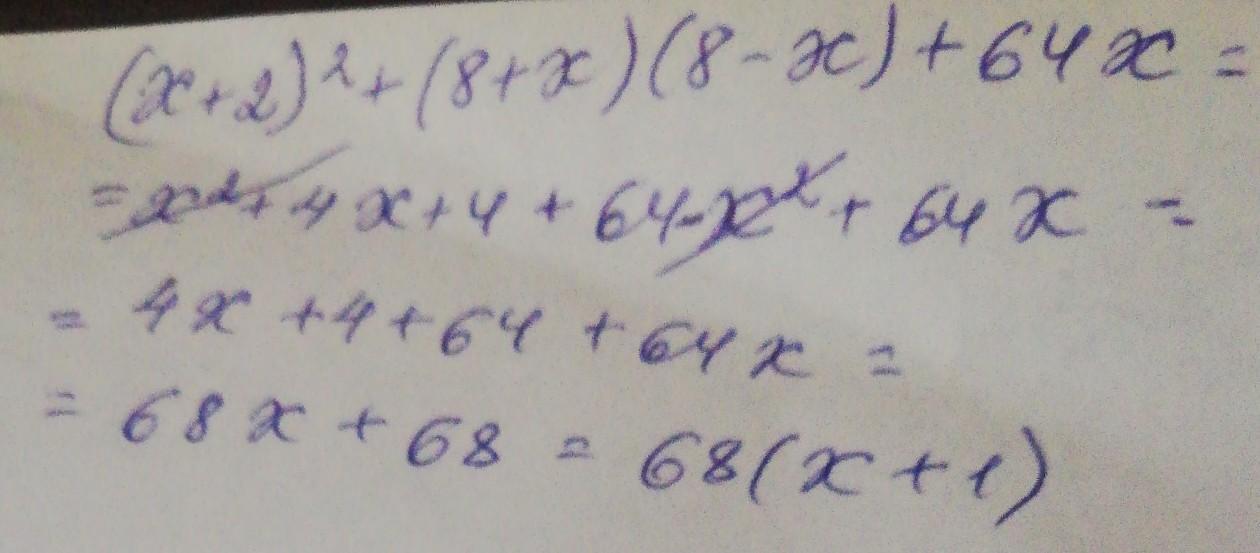 (x+2)²+(8+x)(8-x)+64x=
=x²+4x+4+64-x²+64x=
=4x+4+64+64x=
=68x+68=68(x+1)